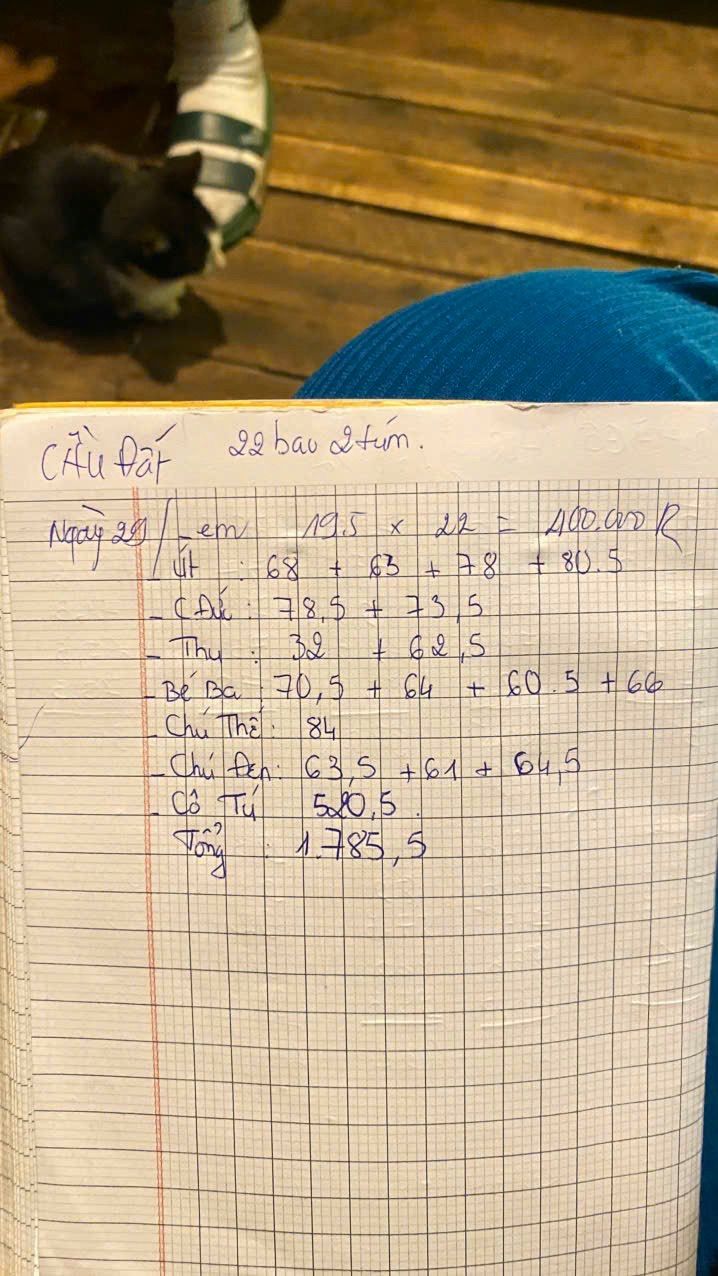 CẦU ĐẤT 22 bao 2 túm.
Ngày 29/ - em 19.5 x 22 = 400.000 R
- Út : 68 + 63 + 78 + 80.5
- C Đức : 78,5 + 73,5
- Thu : 32 + 62,5
- Bé Ba : 70,5 + 64 + 60.5 + 66
- Chú Thế : 84
- Chú Đen : 63,5 + 61 + 64,5
- Cô Tú 520,5.
Tổng : 1.785,5